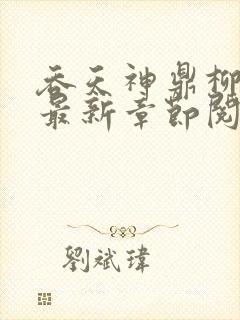 吞天神鼎柳
最新章節閱
劉斌瑋